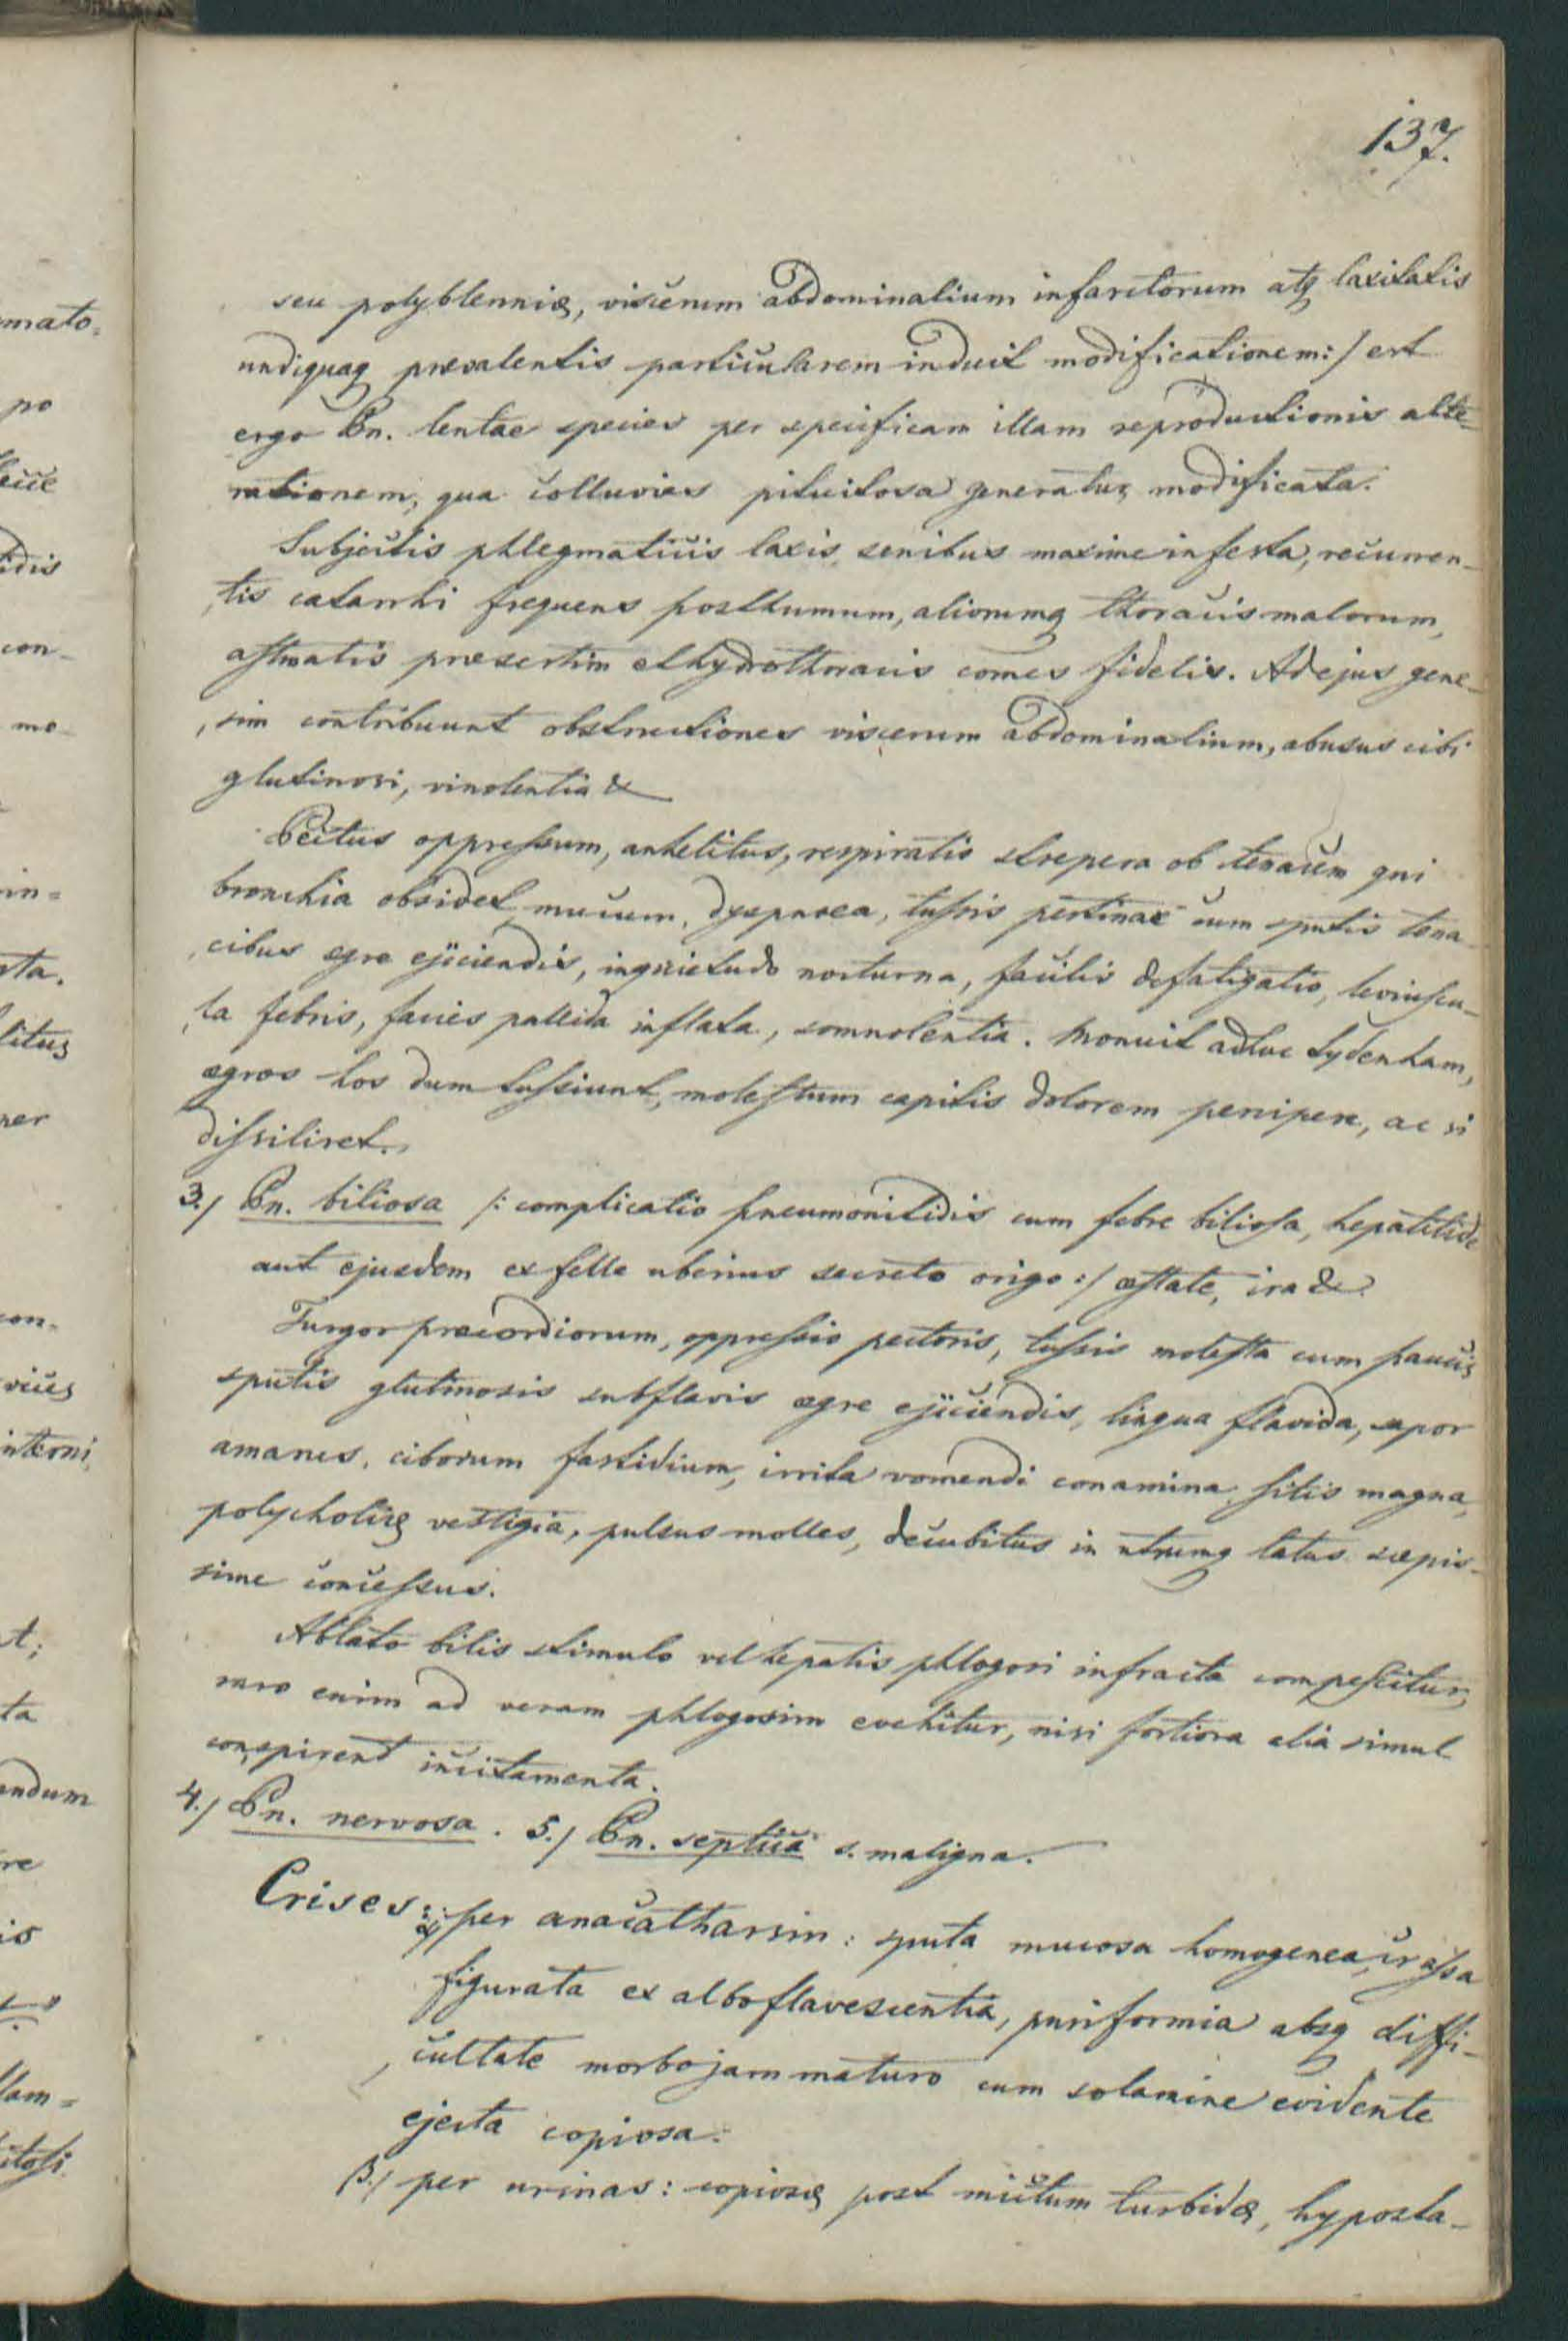 137.
seu polyblenniæ, viscerum abdominalium infarctorum atq laxitatis
undiquaq prævalentis particularem induit modificationem:/ est
ergo Pn. lentae species per specificam illam reproductionis alte-
rationem, qua colluvies pituitosa generatur, modificata.
Subjectis phlegmaticis laxis, senibus maxime infesta, recurren-
tis catarrhi frequens posthumum, aliorumq thoracis malorum,
asthmatis præsertim et hydrothoracis comes fidelis. Ad ejus gene-
sim contribuunt obstructiones viscerum abdominalium, abusus cibi
glutinosi, vinolentia &
Pectus oppressum, anhelitus, respiratio strepera ob tenacem qui
bronchia obsidet mucum, dyspnoea, tussis pertinax cum sputis tena-
cibus ægre ejiciendis, inquietudo nocturna, facilis defatigatio, leviuscu-
la febris, facies pallida inflata, somnolentia. Monuit adhuc Sydenham,
ægros hos dum tussiunt, molestum capitis dolorem percipere, ac si
dissiliret.
3./ Pn. biliosa /: complicatio pneumonitidis cum febre biliosa, hepatitide
aut ejusdem ex felle uberius secreto origo :/ æstate, ira &
Turgor præcordiorum, oppressio pectoris, tussis molesta cum paucis
sputis glutinosis subflavis ægre ejiciendis, lingua flavida, sapor
amarus, ciborum fastidium, irrita vomendi conamina, sitis magna,
polycholiæ vestigia, pulsus molles, decubitus in utrumq latus sæpis-
sime concessus.
Ablato bilis stimulo vel hepatis phlogosi infracta compescitur,
raro enim ad veram phlogosim evehitur, nisi fortiora alia simul
conspirent incitamenta.
4./ Pn. nervosa. 5./ Pn. septica s. maligna.
Crises: α./ per anacatharsin: sputa mucosa homogenea, crassa
figurata ex albo flavescentia, puriformia absq diffi-
cultate morbo jam maturo cum solamine evidente
ejecta copiosa.
β./ per urinas: copiosæ post mictum turbidæ, hyposta-